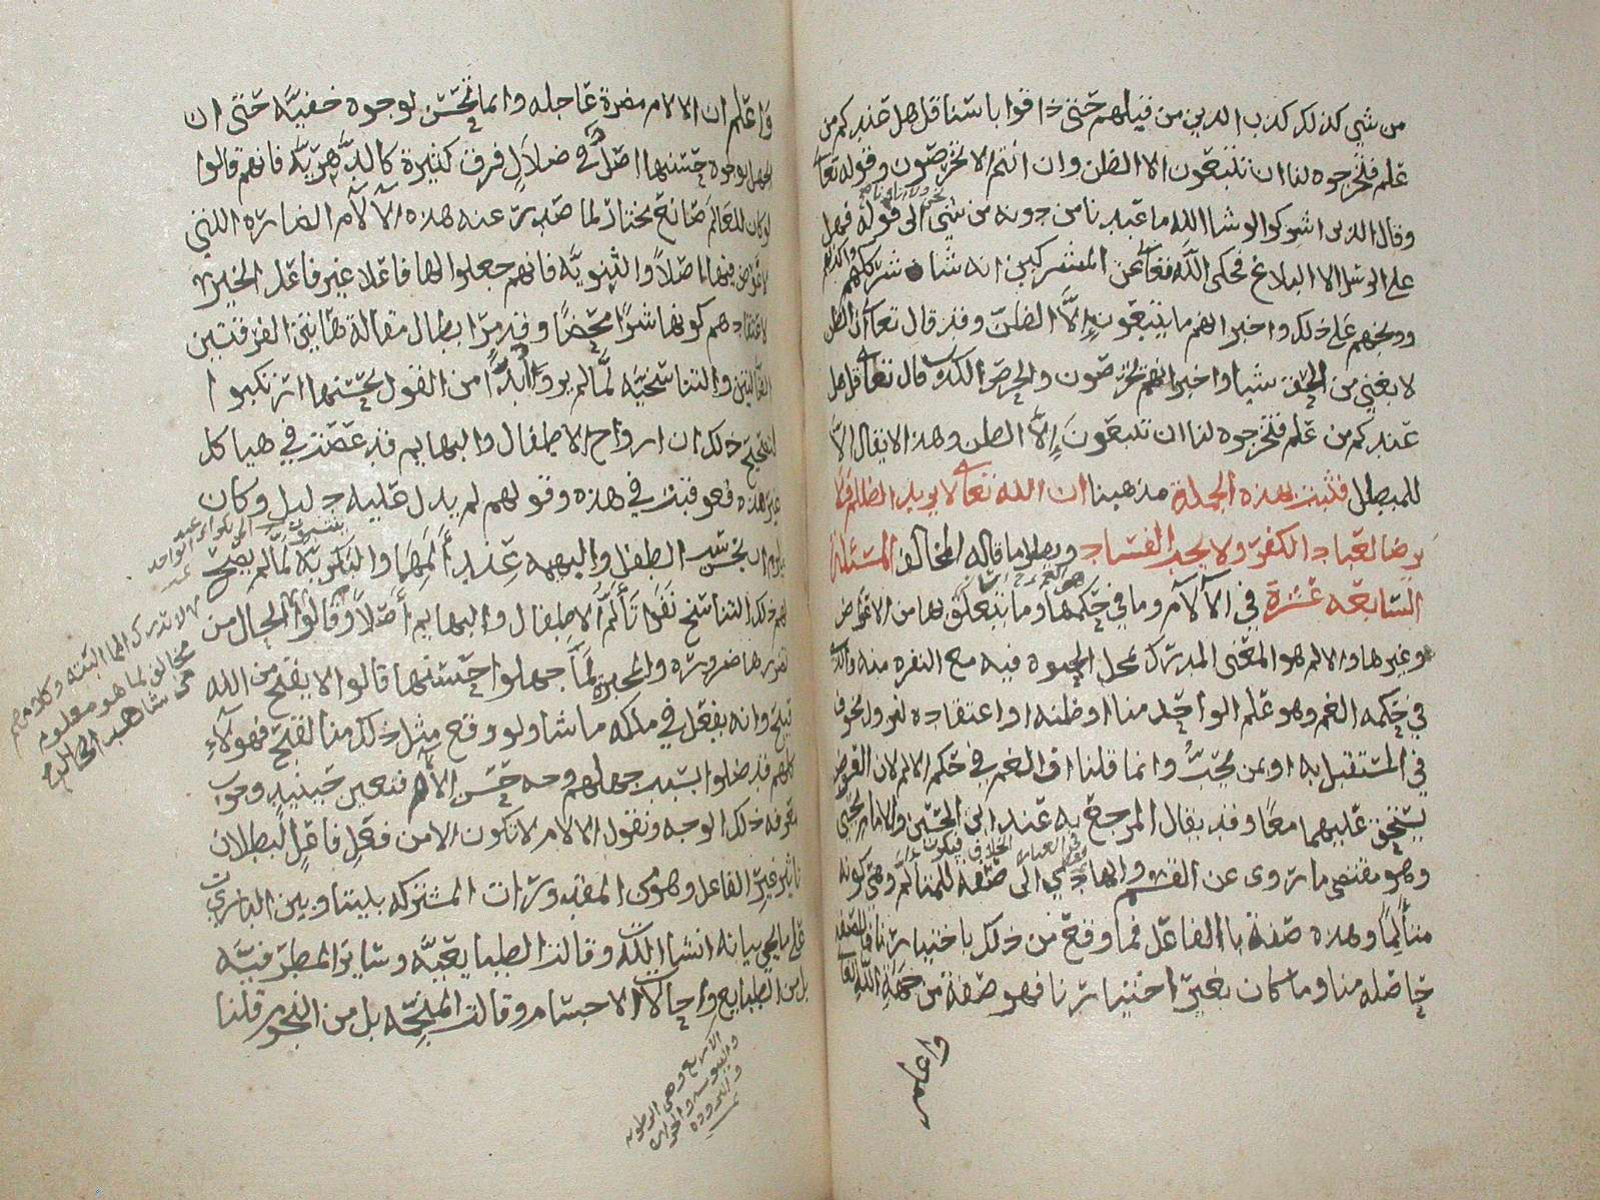 من شي كذلك كذب الذين من قبلهم حتى ذاقوا باسنا قل هل عندكم من
علم فتخرجوه لنا ان تتبعون الا الظن وان انتم الا تخرصون وقوله تعالى
وقال الذين اشركوا لو شا الله ما عبدنا من دونه من شي الى قوله فهل
على الرسل الا البلاغ فحكى الله تعالى عن المشركين انه شا شركهم واكذبهم
ووبخهم على ذلك واخبر انهم ما يتبعون إلا الظن وقد قال تعالى ان الظن
لا يغني من الحق شيا واخبر انهم يخرصون والخرص الكذب قال تعالى قل هل
عندكم من علم فتخرجوه لنا ان تتبعون إلا الظن وهذا لا يقال الا
للمبطل فثبت بهذه الجملة مذهبنا ان الله تعالى لا يريد الظلم ولا
يرضا لعباده الكفر ولا يحب الفساد وبطل ما قاله المخالف المسئلة
السابعة عشرة في الآلآم وما في حكمها وهو الغم وما يتعلق بها من الاعواض
وغيرها والالم هو المعنى المدرك بمحل الحيوة فيه مع النفره منه والذي
في حكمه الغم وهو علم الواحد منا او ظنه او اعتقاده لفروا بخوف
في المستقبل به او بمن يحب وانما قلنا ان الغم في حكم الالم لان العوض
يستحق عليهما معا وقد يقال المرجع به عند ابي الحسين والامام يحيى
وهو مقتضى ما روى عن القسم والهادي الى صفة للمتألم وهي كونه
متألما وهذه صفة بالفاعل فما وقع من ذلك باختيارنا فالصفه
حاصله منا وما كان بغير اختيارنا فهو صفة من جهة الله تعالى
واعلم
واعلم ان الالام مضرة عاجله وانما تحسن لوجوه خفيه حتى ان
الجهل بوجوه حسنها اصل في ضلال فرق كثيرة كالدهرية فانهم قالوا
لو كان للعالم صانع مختار لما صدرت عنه هذه الآلآم الضاره اللتي
لا عوض فيها اصلا والثنويه فانهم جعلوا لها فاعلا غير فاعل الخير
لاعتقادهم كونها شرا محضا وقد مر ابطال مقالة هايتن الفرقتين
الضالتين والتناسخيه لما لم يروا بدا من القول بحسنها ارتكبوا
لتصحيح ذلك ان ارواح الاطفال والبهايم قد عصت في هياكل
غير هذه فعوقبت في هذه وقولهم لم يدل عليه دليل وكان
يلزم ان يخسر الطفل والبهيمه عند ألمهما والبكريه لما لم يصح
لهم ذلك التناسخ نفوا تألم الاطفال والبهايم أصلا وقالوا الحال من
تضررها ضرورة والمجبرة لما جهلوا حسنها قالوا لا يقبح من الله
قبيح وانه يفعل في ملكه ما شا ولو وقع مثل ذلك منا لقبح فهولآء
كلهم قد ضلوا بسبب جهلهم وجه حسن الألم فتعين حينيذ وجوب
معرفة ذلك الوجه ونقول الالام لا تكون الا من فعل فاعل لبطلان
تاثير غير الفاعل وهو من المقدورات المشتركه بيننا وبين الباري
على ما يجي بيانه انشا الله وقالت الطبايعيه وساير المطرفيه
بل من الطبايع واحالات الاجسام وقالت المنجمه بل من النجوم قلنا
لا تدرك الما البته وكلامهم
مخالف لما هو معلوم
من شاهد الحال
الاربع وهي الرطوبه
واليبوسه والحراره
والبرودة